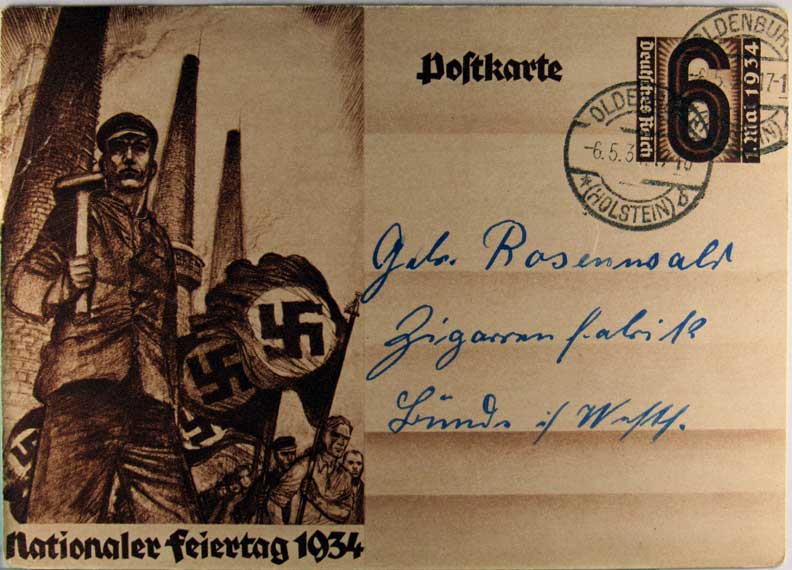 Postkarte
Deutsches Reich
6
1. Mai 1934
OLDENBURG
-6.5.3
(HOLSTEIN)
OLDENBURG
-6.5.
17-1
Gebr. Rosenwald
Zigarrenfabrik
Bünde i/ Westf.
Nationaler Feiertag 1934